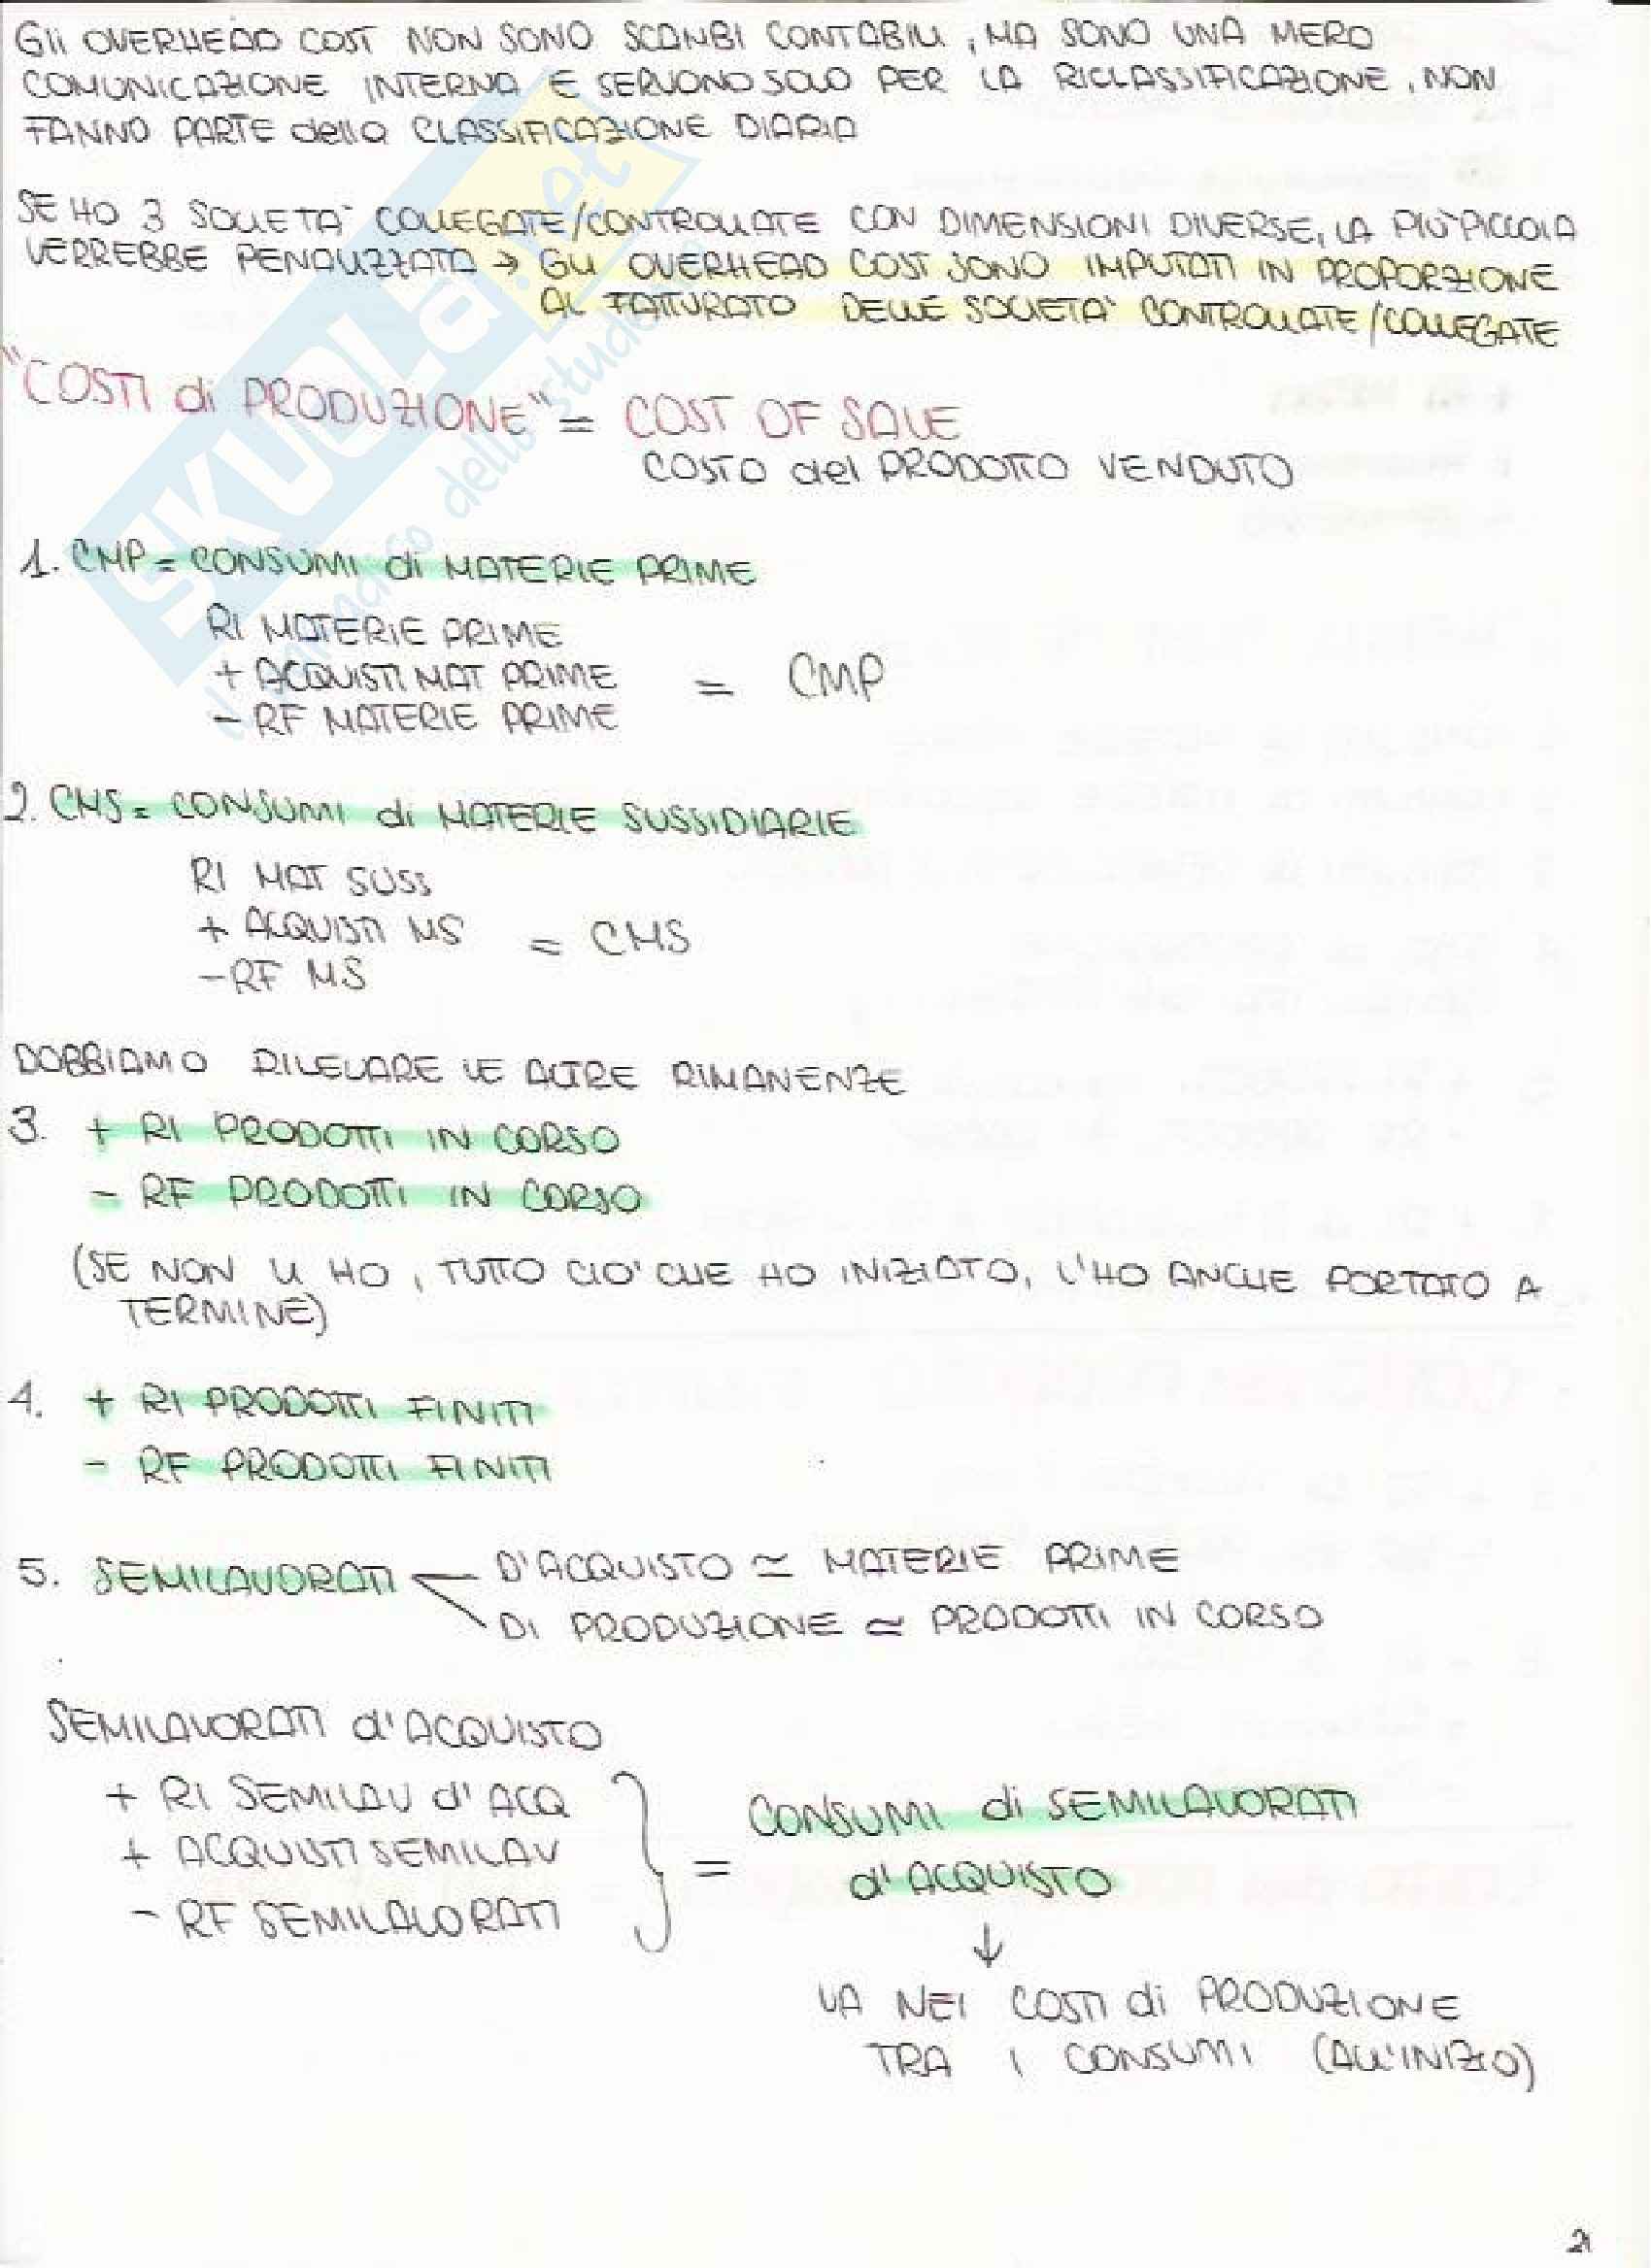 Gli OVERHEAD COST NON SONO SCAMBI CONTABILI, MA SONO UNA MERA
COMUNICAZIONE INTERNA E SERVONO SOLO PER LA RICLASSIFICAZIONE, NON
FANNO PARTE della CLASSIFICAZIONE DIARIA
SE HO 3 SOCIETA' COLLEGATE/CONTROLLATE CON DIMENSIONI DIVERSE, LA PIU' PICCOLA
VERREBBE PENALIZZATA → GLI OVERHEAD COST SONO IMPUTATI IN PROPORZIONE
AL FATTURATO DELLE SOCIETA' CONTROLLATE/COLLEGATE
"COSTI di PRODUZIONE" = COST OF SALE
COSTO del PRODOTTO VENDUTO
1. CMP = CONSUMI di MATERIE PRIME
RI MATERIE PRIME
+ ACQUISTI MAT PRIME = CMP
- RF MATERIE PRIME
2. CMS = CONSUMI di MATERIE SUSSIDIARIE
RI MAT SUSS
+ ACQUISTI MS = CMS
- RF MS
DOBBIAMO RILEVARE LE ALTRE RIMANENZE
3. + RI PRODOTTI IN CORSO
- RF PRODOTTI IN CORSO
(SE NON LI HO, TUTTO CIO' CHE HO INIZIATO, L'HO ANCHE PORTATO A
TERMINE)
4. + RI PRODOTTI FINITI
- RF PRODOTTI FINITI
5. SEMILAVORATI D'ACQUISTO ≃ MATERIE PRIME
DI PRODUZIONE ≃ PRODOTTI IN CORSO
SEMILAVORATI d'ACQUISTO
+ RI SEMILAV d'ACQ
+ ACQUISTI SEMILAV
- RF SEMILAVORATI
} = CONSUMI di SEMILAVORATI
d'ACQUISTO
↓
VA NEI COSTI di PRODUZIONE
TRA I CONSUMI (ALL'INIZIO)
21
SKUOLA.net